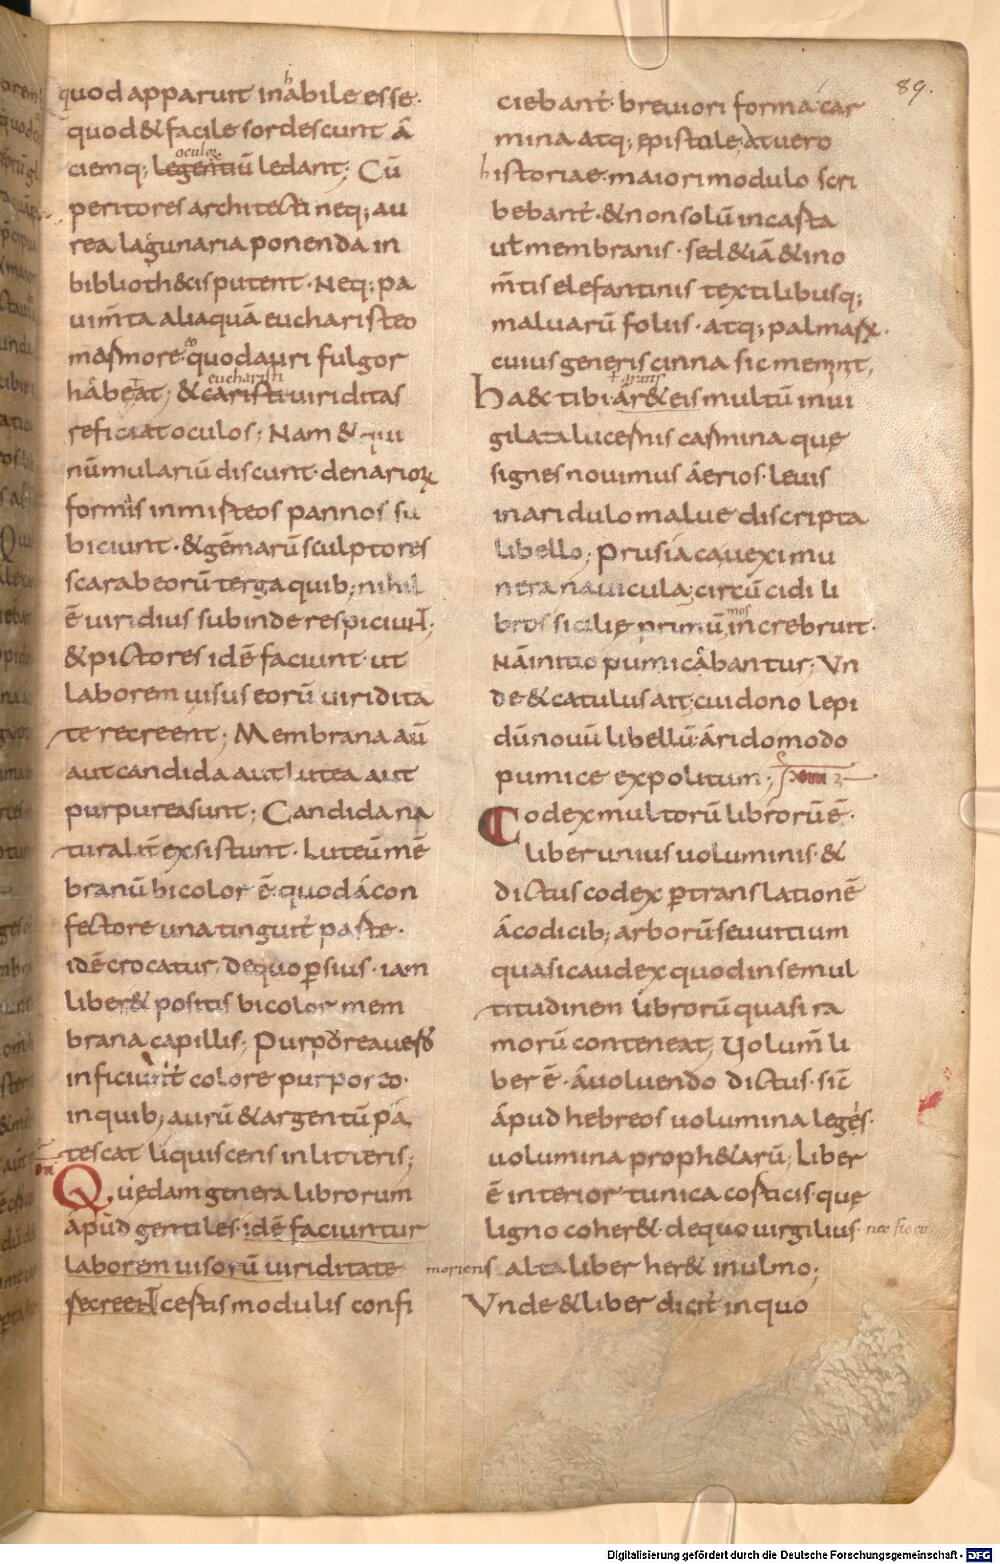 89.
quod apparuit inhabile esse·
quod & facile sordescunt á
ciemq; legentiū ledant; Cū
oculor
peritores architecti neq; au
rea lagunaria ponenda in
biblioth&cis putent· Neq; pa
uim̄ta aliaquā eucharisteo
masmore quod auri fulgor
eo
hábetat; & caristi uiriditas
eucharisti
reficiat oculos; Nam & qui
nūmulariū discunt· denarioꝝ
formis inmisteos pannos su
biciunt· & gēmarū sculptores
scarabeorū terga quib; nihil
ē uiridius subinde respiciunt;
& pictores idē faciunt· ut
laborem uisus eorū uiridita
te recreent; Membrana aū
aut candida aut lutea aut
purpurea sunt; Candida na
turalit̄ exsistunt· Luteū mē
branū bicolor ē· quod á con
fectore una tinguit̄ paste·
idē crocatur, de quo ꝑsius· iam
liber & positis bicolor mem
brana capillis; Purporea uero
inficiunt̄ colore purporeo·
in quib; aurū & argentū pa
tescat liquiscens in litteris;
Quędam genera librorum
apud gentiles· idē faciuntur
laborem uisorū uiriditate
recreent certis modulis confi
ciebant̄· breuiori forma car
mina atq; epistole, at uero
historiae· maiori modulo scri
bebant̄· & non solū in casta
ut̄ membranis· sed & iā & in o
m̄tis elefantinis textilibusq;
maluarū foliis· atq; palmaꝝ·
cuius generis cinna sic memnt̄,
Haec tibi ár&eis multū inui
gilata lucernis casmina quę
signes nouimus áerios· leuis
in aridulo malue discripta
libello; Prusiaca uexi mu
nera nauicula; circū cidi li
bros sicilię primū increbruit·
mos
Nā initio pumicabantur; Vn
de & catulus ait; cui dono lepi
dū nouū libellū· árido modo
pumice expolitum;
Codex multorū librorū ē·
liber unius uoluminis· &
dictus codex ꝑ translationē
á codicib; arborū seu uitium
quasi caudex quod in se mul
titudinem librorū quasi ra
morū conteneat; Uolum̄ li
ber ē· á uoluendo dictus· sic̄
ápud hebreos uolumina legės·
uolumina proph&arū; Liber
ē interior tunica costicis· quę
ligno coher&· de quo uirgilius·
moriens alta liber her& in ulmo;
Vnde & liber dicit̄ in quo